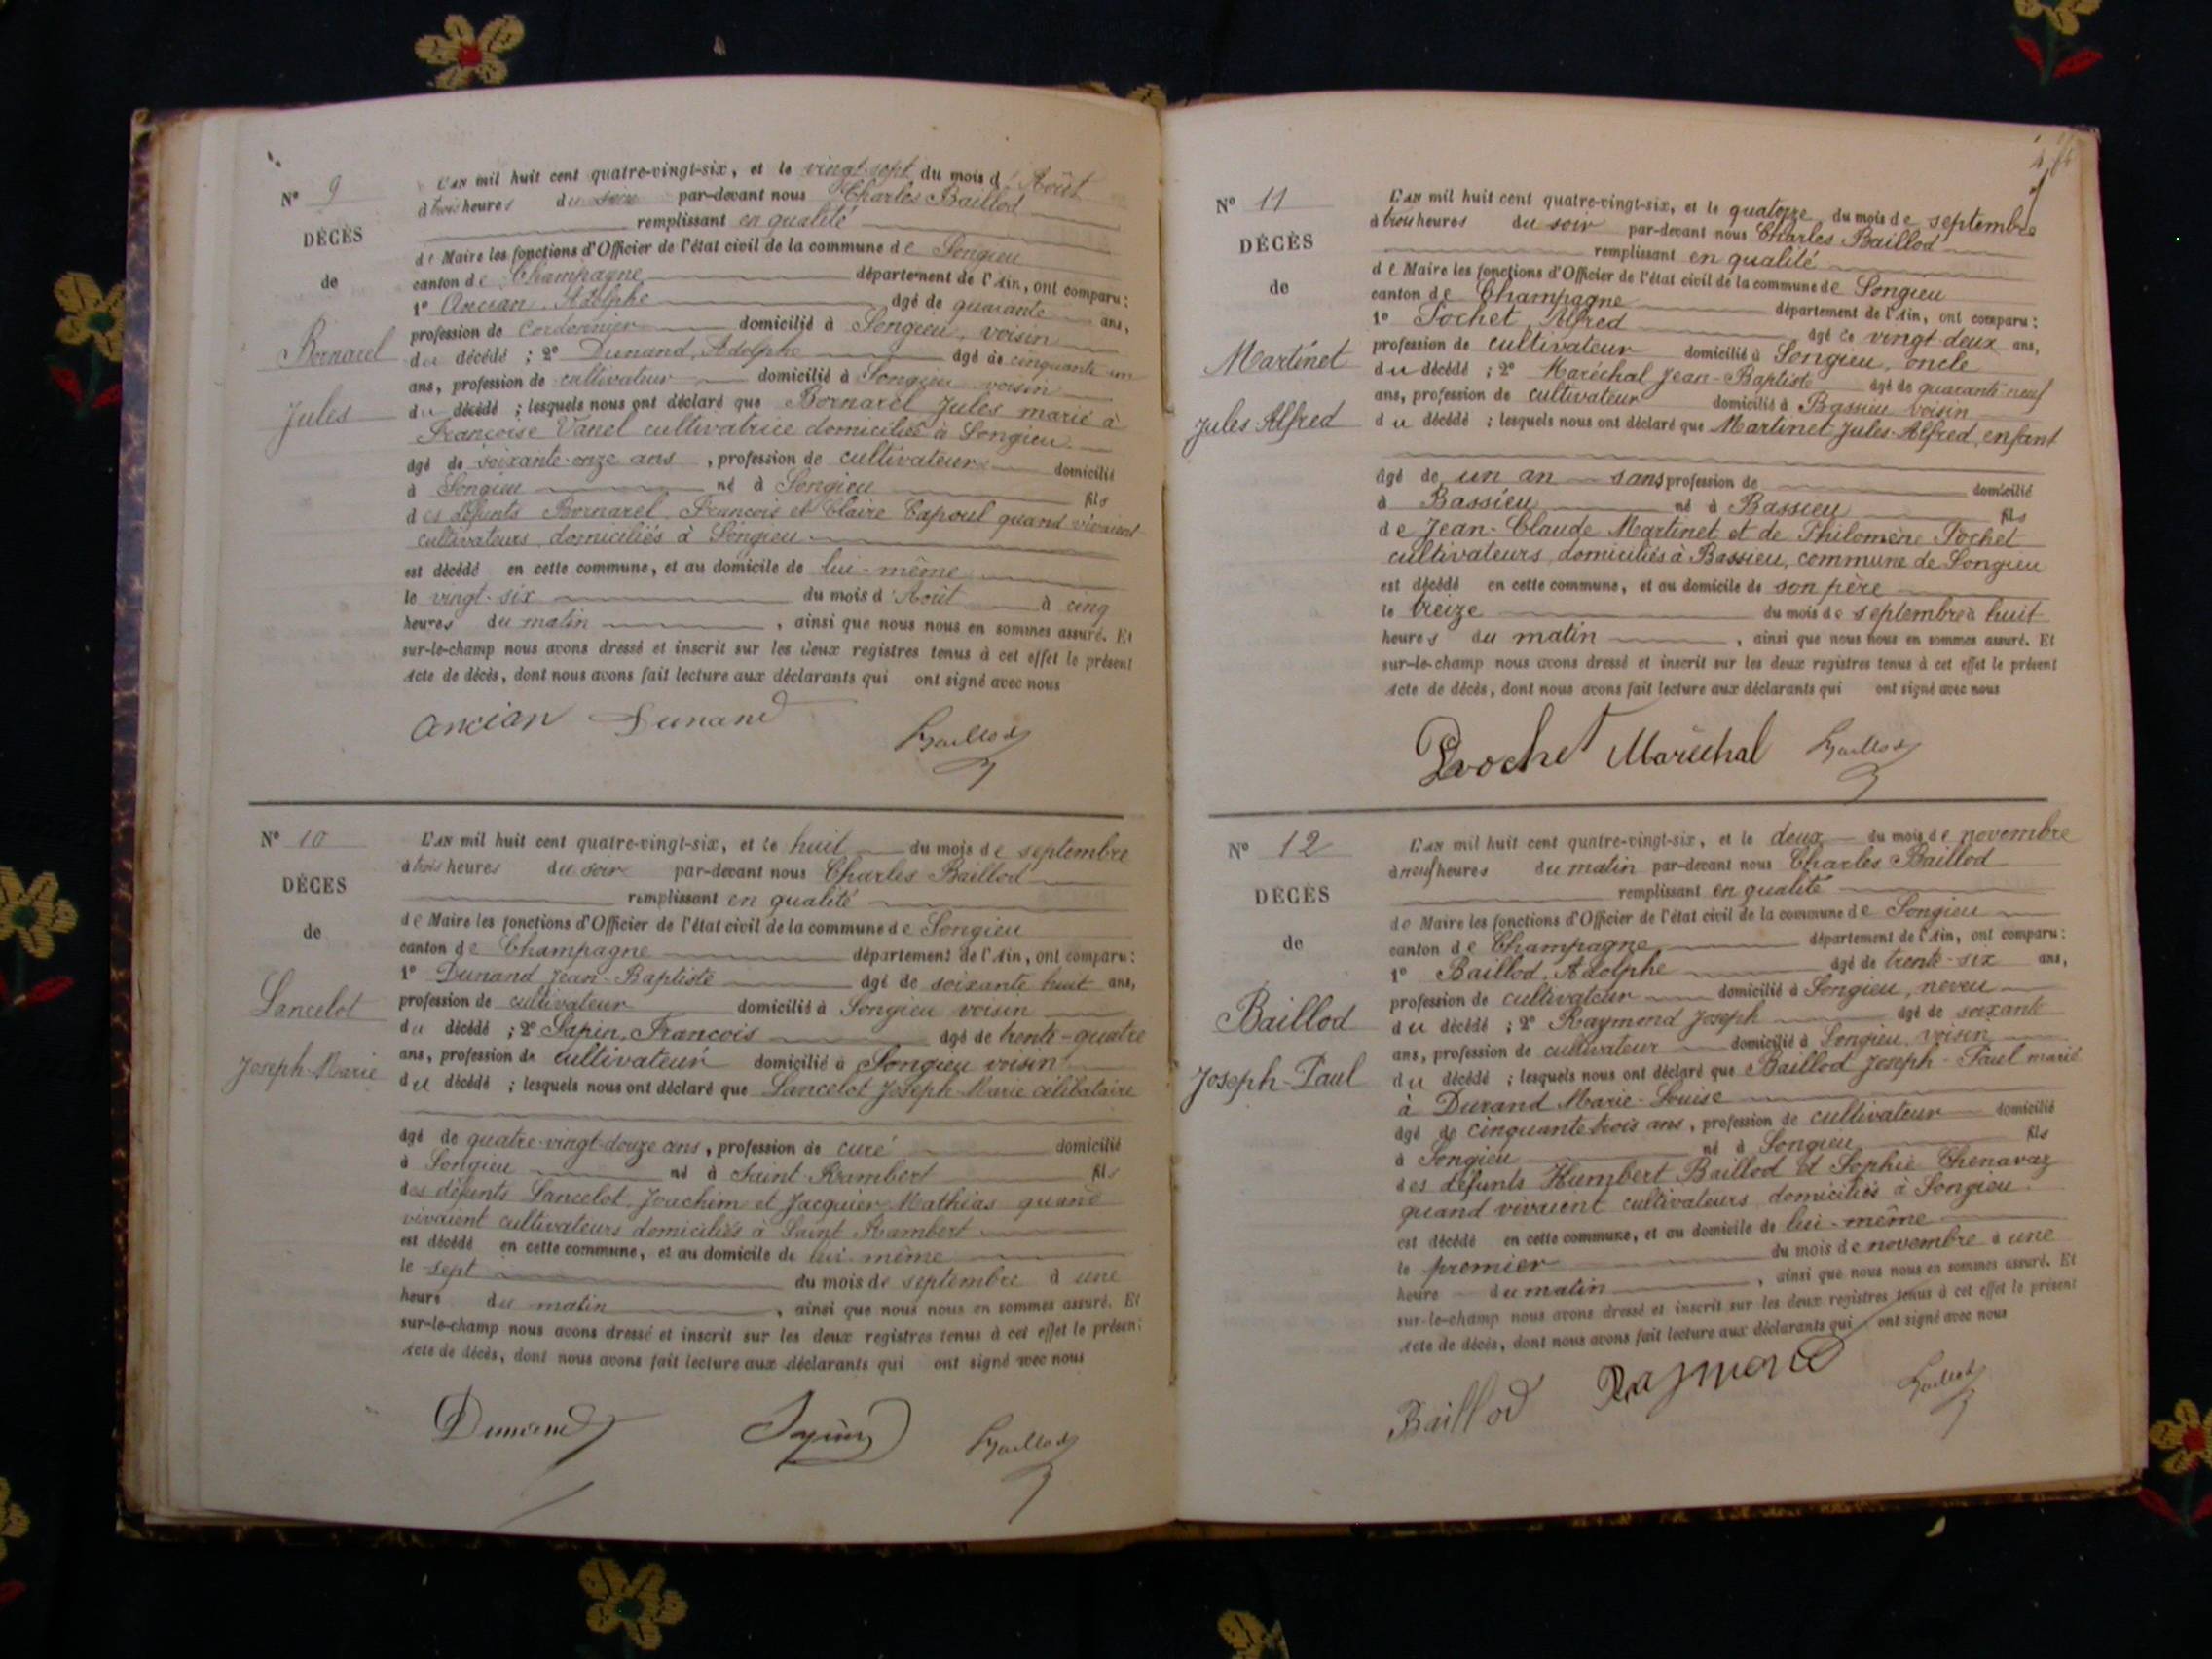 N° 9
DÉCÈS
de
Bornarel
Jules
L'an mil huit cent quatre-vingt-six, et le vingt-sept du mois d'Août
à trois heures du soir par-devant nous Charles Baillod
remplissant en qualité
de Maire les fonctions d'Officier de l'état civil de la commune de Songieu
canton de Champagne département de l'Ain, ont comparu :
1° Ancian, Adolphe âgé de quarante ans,
profession de Cordonnier domicilié à Songieu, voisin
du décédé ; 2° Dunand, Adolphe âgé de cinquante un
ans, profession de cultivateur domicilié à Songieu voisin
du décédé ; lesquels nous ont déclaré que Bornarel Jules marié à
Françoise Vanel cultivatrice domiciliée à Songieu
âgé de soixante-onze ans, profession de cultivateur domicilié
à Songieu né à Songieu fils
des défunts Bornarel, François et Claire Capoul quand vivaient
cultivateurs domiciliés à Songieu
est décédé en cette commune, et au domicile de lui-même
le vingt-six du mois d'Août à cinq
heures du matin, ainsi que nous nous en sommes assuré. Et
sur-le-champ nous avons dressé et inscrit sur les deux registres tenus à cet effet le présent
Acte de décès, dont nous avons fait lecture aux déclarants qui ont signé avec nous
Ancian Dunand Baillod
N° 10
DÉCÈS
de
Lancelot
Joseph-Marie
L'an mil huit cent quatre-vingt-six, et le huit du mois de septembre
à trois heures du soir par-devant nous Charles Baillod
remplissant en qualité
de Maire les fonctions d'Officier de l'état civil de la commune de Songieu
canton de Champagne département de l'Ain, ont comparu :
1° Dunand Jean-Baptiste âgé de soixante huit ans,
profession de cultivateur domicilié à Songieu voisin
du décédé ; 2° Sapin, François âgé de trente-quatre
ans, profession de cultivateur domicilié à Songieu voisin
du décédé ; lesquels nous ont déclaré que Lancelot Joseph-Marie célibataire
âgé de quatre-vingt-douze ans, profession de curé domicilié
à Songieu né à Saint-Rambert fils
des défunts Lancelot, Joachim et Jacquier Mathias quand
vivaient cultivateurs domiciliés à Saint Rambert
est décédé en cette commune, et au domicile de lui-même
le sept du mois de septembre à une
heure du matin, ainsi que nous nous en sommes assuré. Et
sur-le-champ nous avons dressé et inscrit sur les deux registres tenus à cet effet le présent
Acte de décès, dont nous avons fait lecture aux déclarants qui ont signé avec nous
Dunand Sapin Baillod
N° 11
DÉCÈS
de
Martinet
Jules-Alfred
L'an mil huit cent quatre-vingt-six, et le quatorze du mois de septembre
à trois heures du soir par-devant nous Charles Baillod
remplissant en qualité
de Maire les fonctions d'Officier de l'état civil de la commune de Songieu
canton de Champagne département de l'Ain, ont comparu :
1° Pochet, Alfred âgé de vingt-deux ans,
profession de cultivateur domicilié à Songieu, oncle
du décédé ; 2° Maréchal Jean-Baptiste âgé de quarante-neuf
ans, profession de cultivateur domicilié à Bassieu voisin
du décédé ; lesquels nous ont déclaré que Martinet Jules-Alfred, enfant
âgé de un an sans profession de domicilié
à Bassieu né à Bassieu fils
de Jean-Claude Martinet et de Philomène Pochet
cultivateurs, domiciliés à Bassieu, commune de Songieu
est décédé en cette commune, et au domicile de son père
le treize du mois de septembre à huit
heures du matin, ainsi que nous nous en sommes assuré. Et
sur-le-champ nous avons dressé et inscrit sur les deux registres tenus à cet effet le présent
Acte de décès, dont nous avons fait lecture aux déclarants qui ont signé avec nous
Pochet Maréchal Baillod
N° 12
DÉCÈS
de
Baillod
Joseph-Paul
L'an mil huit cent quatre-vingt-six, et le deux du mois de novembre
à neuf heures du matin par-devant nous Charles Baillod
remplissant en qualité
de Maire les fonctions d'Officier de l'état civil de la commune de Songieu
canton de Champagne département de l'Ain, ont comparu :
1° Baillod, Adolphe âgé de trente-six ans,
profession de cultivateur domicilié à Songieu, neveu
du décédé ; 2° Raymond Joseph âgé de soixante
ans, profession de cultivateur domicilié à Songieu, voisin
du décédé ; lesquels nous ont déclaré que Baillod Joseph-Paul marié
à Durand Marie-Louise
âgé de cinquante trois ans, profession de cultivateur domicilié
à Songieu né à Songieu fils
des défunts Humbert Baillod et Sophie Chenavaz
quand vivaient cultivateurs domiciliés à Songieu
est décédé en cette commune, et au domicile de lui-même
le premier du mois de novembre à une
heure du matin, ainsi que nous nous en sommes assuré. Et
sur-le-champ nous avons dressé et inscrit sur les deux registres tenus à cet effet le présent
Acte de décès, dont nous avons fait lecture aux déclarants qui ont signé avec nous
Baillod Raymond Baillod